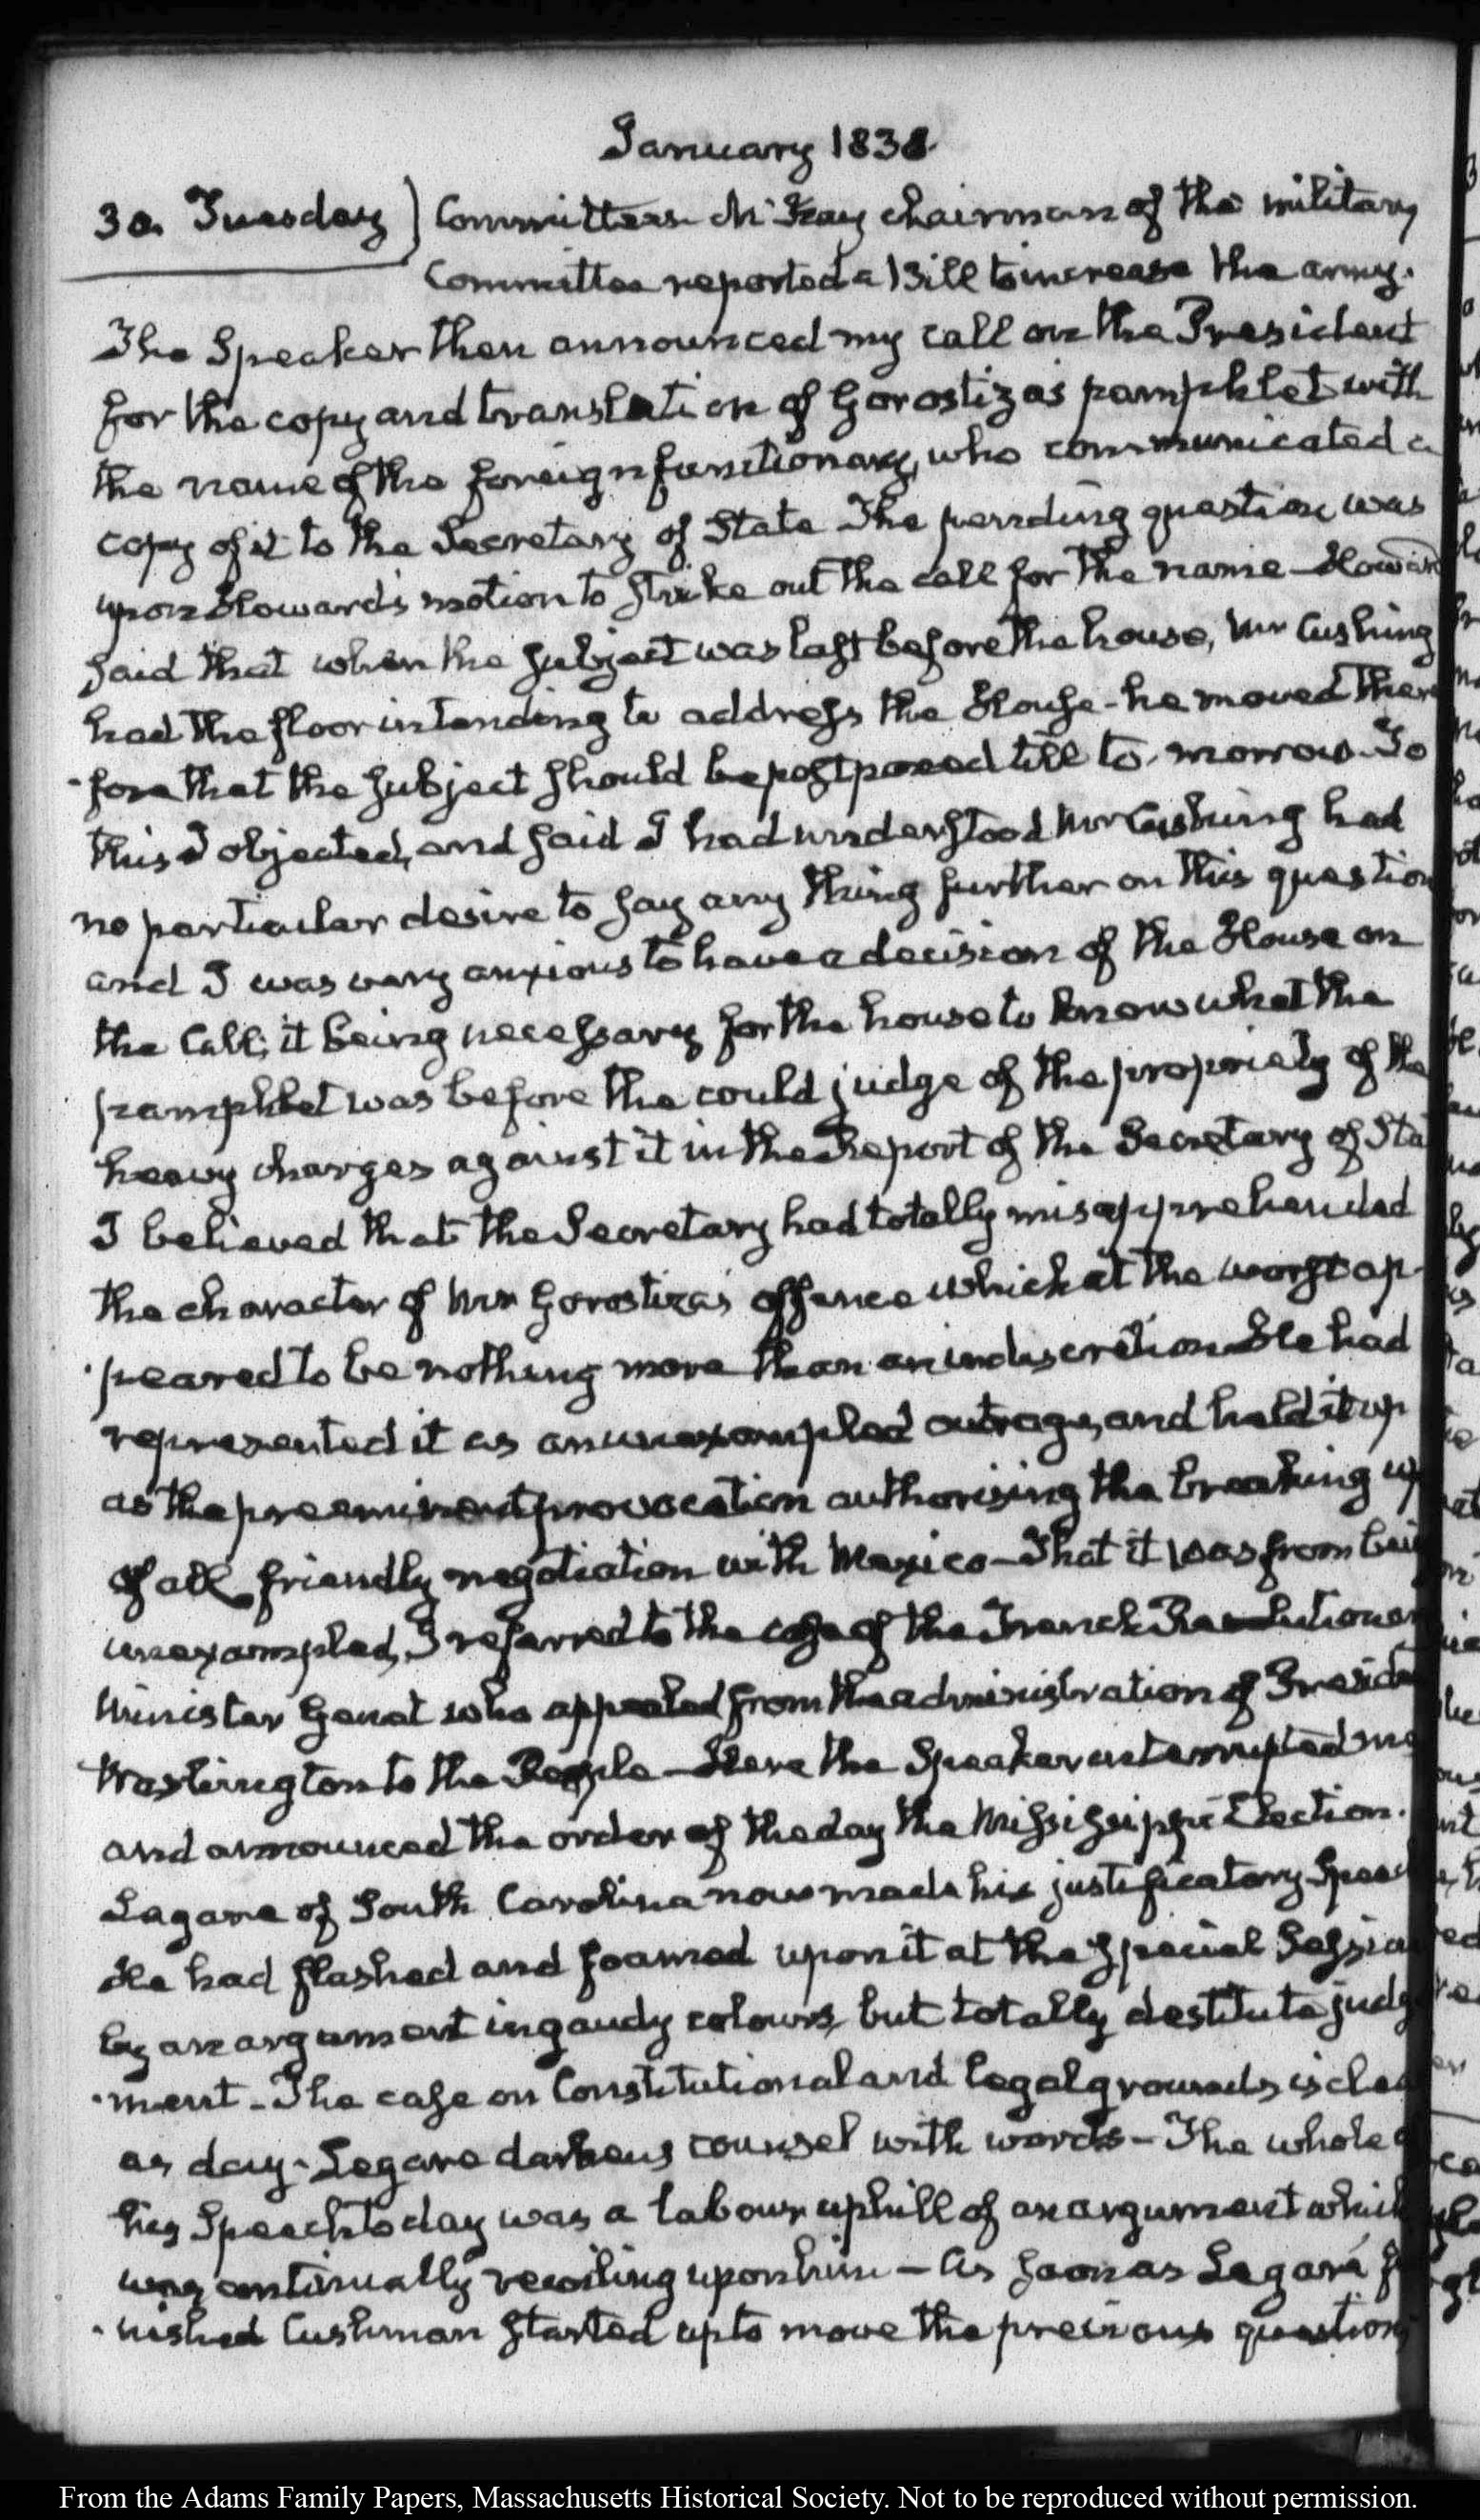 January 1838
30. Tuesday) Committees McKay chairman of the military
Committee reported a Bill to increase the army.
The Speaker then announced my call on the President
for the copy and translation of Gorostiza's pamphlet with
the name of the foreign functionary, who communicated a
copy of it to the Secretary of State The pending question was
upon Howard's motion to strike out the call for the name – Howard
said that when the subject was last before the house, Mr Cushing
had the floor intending to address the House – he moved there
-fore that the subject should be postponed till to-morrow. To
this I objected, and said I had understood Mr Cushing had
no particular desire to say any thing further on this question
and I was very anxious to have a decision of the House on
the Call; it being necessary for the house to know what the
pamphlet was before the could judge of the propriety of the
heavy charges against it in the Report of the Secretary of Sta
I believed that the Secretary had totally misapprehended
the character of Mr Gorostiza's offence which at the worst ap-
-peared to be nothing more than an indiscretion. He had
represented it as an unexampled outrage, and held it up
as the preeminent provocation authorising the breaking up
of all friendly negotiation with Mexico – That it was from bei
unexampled, I referred to the case of the French Revolutionar
Minister Genet who appealed from the administration of Preside
Washington to the People – Here the Speaker interrupted me
and announced the order of the day the Mississippi Election.
Legare of South Carolina now made his justificatory Speec
He had flashed and foamed upon it at the special Session
by an argument in gaudy colours, but totally destitute judg
-ment – The case on Constitutional and legal grounds is clea
as day – Legare darkens counsel with words – The whole
his Speech to day was a labour uphill of an argument which
was continually recoiling upon him – As soon as Legaré fi
-nished Cushman started up to move the previous question
From the Adams Family Papers, Massachusetts Historical Society. Not to be reproduced without permission.